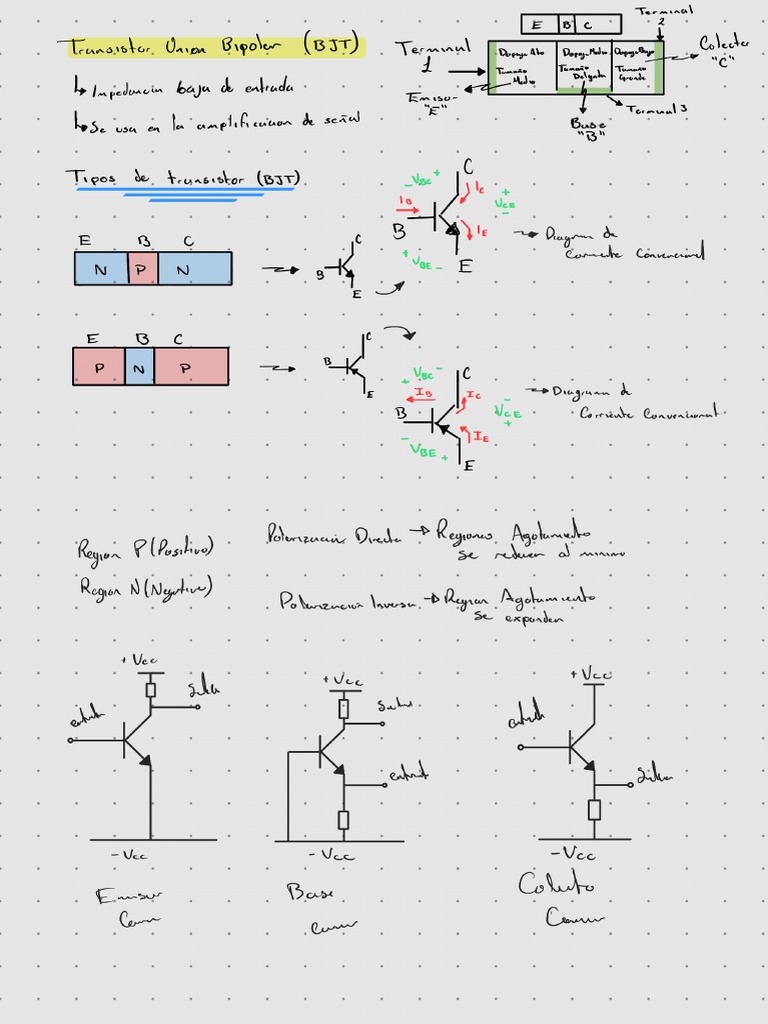 Transistor Union Bipolar (BJT)
Impedancia baja de entrada
Se usa en la amplificacion de señal
E B C
Terminal 1
Terminal 2
Dopaje Alto
Tamaño Medio
Dopaje Medio
Tamaño Delgada
Dopaje Bajo
Tamaño Grande
Colector "C"
Emisor "E"
Base "B"
Terminal 3
Tipos de transistor (BJT)
E B C
N P N
B C E
- VBC +
C
IB
IC
+ VCE -
B
IE
+ VBE -
E
Diagrama de
Corriente Convencional
E B C
P N P
B C E
+ VBC -
C
IB
IC
- VCE +
B
IE
- VBE +
E
Diagrama de
Corriente Convencional
Region P (Positivo)
Region N (Negativo)
Polarización Directa → Regiones Agotamiento
se reducen al minimo
Polarización Inversa → Region Agotamiento
se expanden
+ Vcc
entrada
Salida
- Vcc
Emisor
Comun
+ Vcc
Salida
entrada
- Vcc
Base
Comun
+ Vcc
entrada
Salida
- Vcc
Colector
Comun